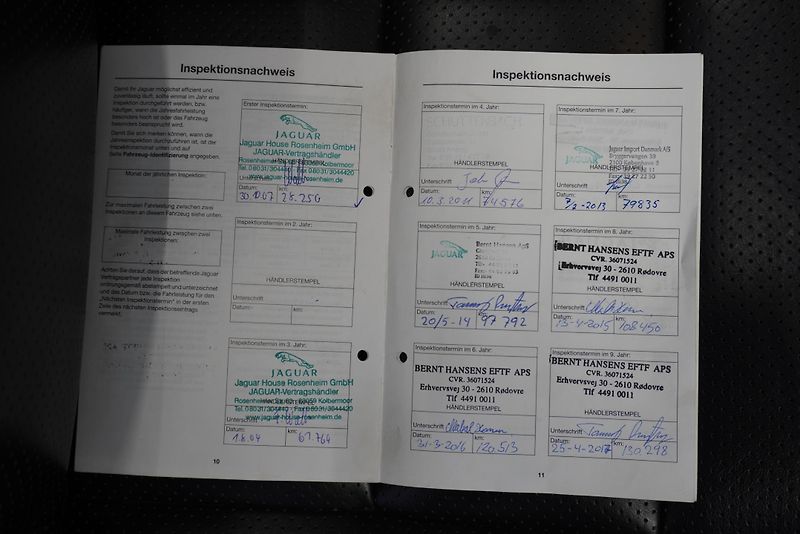 Inspektionsnachweis
Damit Ihr Jaguar möglichst effizient und
zuverlässig läuft, sollte einmal im Jahr eine
Inspektion durchgeführt werden, bzw.
häufiger, wenn die Jahresfahrleistung
besonders hoch ist oder das Fahrzeug
besonders beansprucht wird.
Damit Sie sich merken können, wann die
Jahresinspektion durchzuführen ist, ist der
Inspektionsmonat unten und auf
Seite Fahrzeug-Identifizierung angegeben.
Monat der jährlichen Inspektion:
Zur maximalen Fahrleistung zwischen zwei
Inspektionen an diesem Fahrzeug siehe unten.
Maximale Fahrleistung zwischen zwei
Inspektionen:
Achten Sie darauf, dass der betreffende Jaguar
Vertragspartner jede Inspektion
ordnungsgemäß abstempelt und unterzeichnet
und das Datum bzw. die Fahrleistung für den
"Nächsten Inspektionstermin" in der ersten
Zeile des nächsten Inspektionseintrags
vermerkt.
Erster Inspektionstermin:
JAGUAR
Jaguar House Rosenheim GmbH
JAGUAR-Vertragshändler
Kolbermoor
Tel. 08031/3044420
www.jaguar-rosenheim.de
Unterschrift
Datum: km:
30.10.07 28.250
Inspektionstermin im 2. Jahr:
HÄNDLERSTEMPEL
Unterschrift
Datum: km:
Inspektionstermin im 3. Jahr:
JAGUAR
Jaguar House Rosenheim GmbH
JAGUAR-Vertragshändler
Kolbermoor
Tel. 08031/3044420
www.jaguar-rosenheim.de
Unterschrift
Datum: km:
10
Inspektionsnachweis
Inspektionstermin im 4. Jahr:
HÄNDLERSTEMPEL
Unterschrift
Datum: km:
10.3.2011 74576
Inspektionstermin im 5. Jahr:
JAGUAR
Bernt Hansens ApS
HÄNDLERSTEMPEL
Unterschrift
Datum: km:
20/5-14 97 792
Inspektionstermin im 6. Jahr:
BERNT HANSENS EFTF APS
CVR. 36071524
Erhvervsvej 30 - 2610 Rødovre
Tlf 4491 0011
HÄNDLERSTEMPEL
Unterschrift
Datum: km:
31-3-2016 120.513
Inspektionstermin im 7. Jahr:
JAGUAR
Jaguar Import Danmark A/S
Bryggervangen 39
HÄNDLERSTEMPEL
Unterschrift
Datum: km:
7/2-2013 79835
Inspektionstermin im 8. Jahr:
BERNT HANSENS EFTF APS
CVR. 36071524
Erhvervsvej 30 - 2610 Rødovre
Tlf 4491 0011
HÄNDLERSTEMPEL
Unterschrift
Datum: km:
13-4-2015 108450
Inspektionstermin im 9. Jahr:
BERNT HANSENS EFTF APS
CVR. 36071524
Erhvervsvej 30 - 2610 Rødovre
Tlf 4491 0011
HÄNDLERSTEMPEL
Unterschrift
Datum: km:
25-4-2017 130.298
11